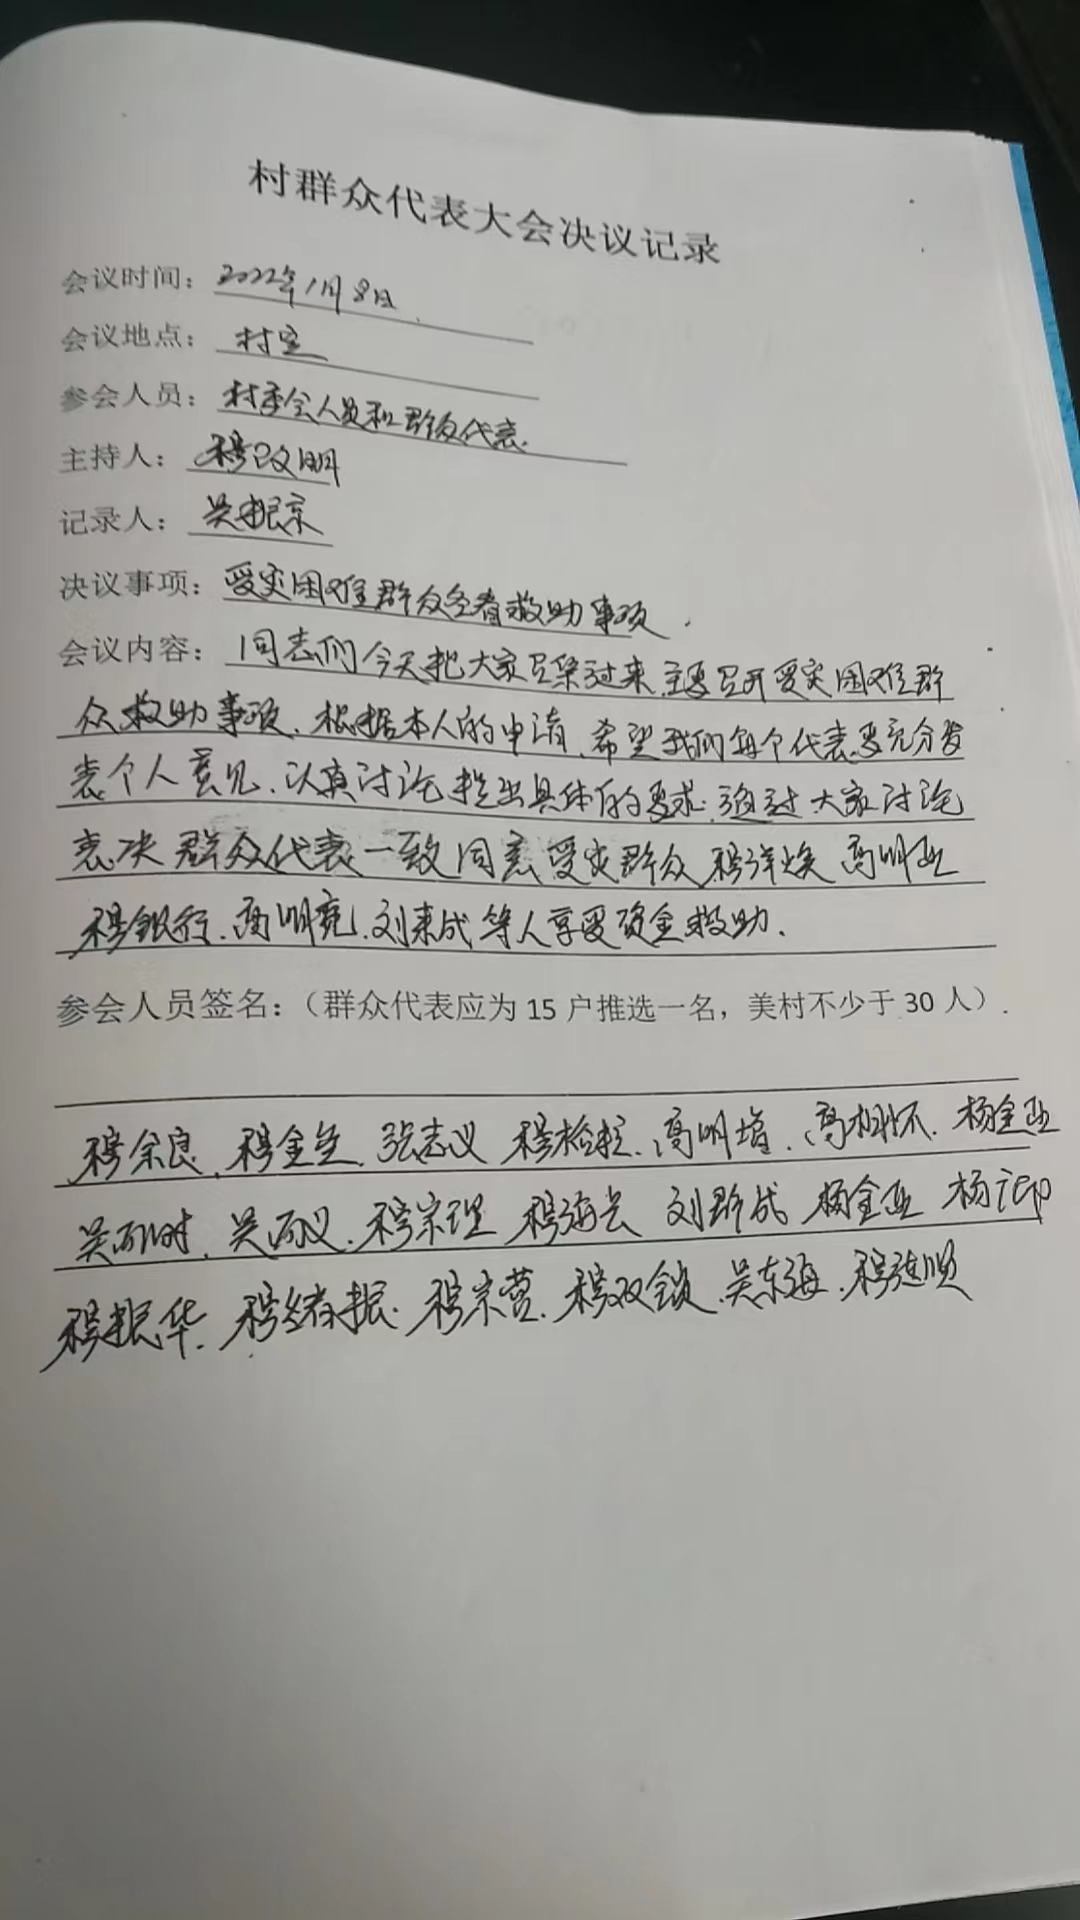 村群众代表大会决议记录
会议时间：2022年1月8日
会议地点：村室
参会人员：村委会人员和群众代表.
主持人：穆改明
记录人：吴振宗
决议事项：受灾困难群众冬春救助事项.
会议内容：同志们今天把大家召集过来主要召开受灾困难群
众救助事项、根据本人的申请、希望我们每个代表要充分发
表个人意见、认真讨论提出具体的要求、通过大家讨论
表决群众代表一致同意受灾群众穆洋焕 高明亚
穆银行、高明亮、刘来成等人享受资金救助、
参会人员签名：（群众代表应为 15 户推选一名，美村不少于 30 人）.
穆余良、穆金生、张志义 穆检拉、高明增、高相怀、杨金亚
吴、吴、穆宗理 穆海云 刘群成 杨金亚 杨
穆振华、穆绪振、穆宗营、穆双锁、吴东海、穆进顺